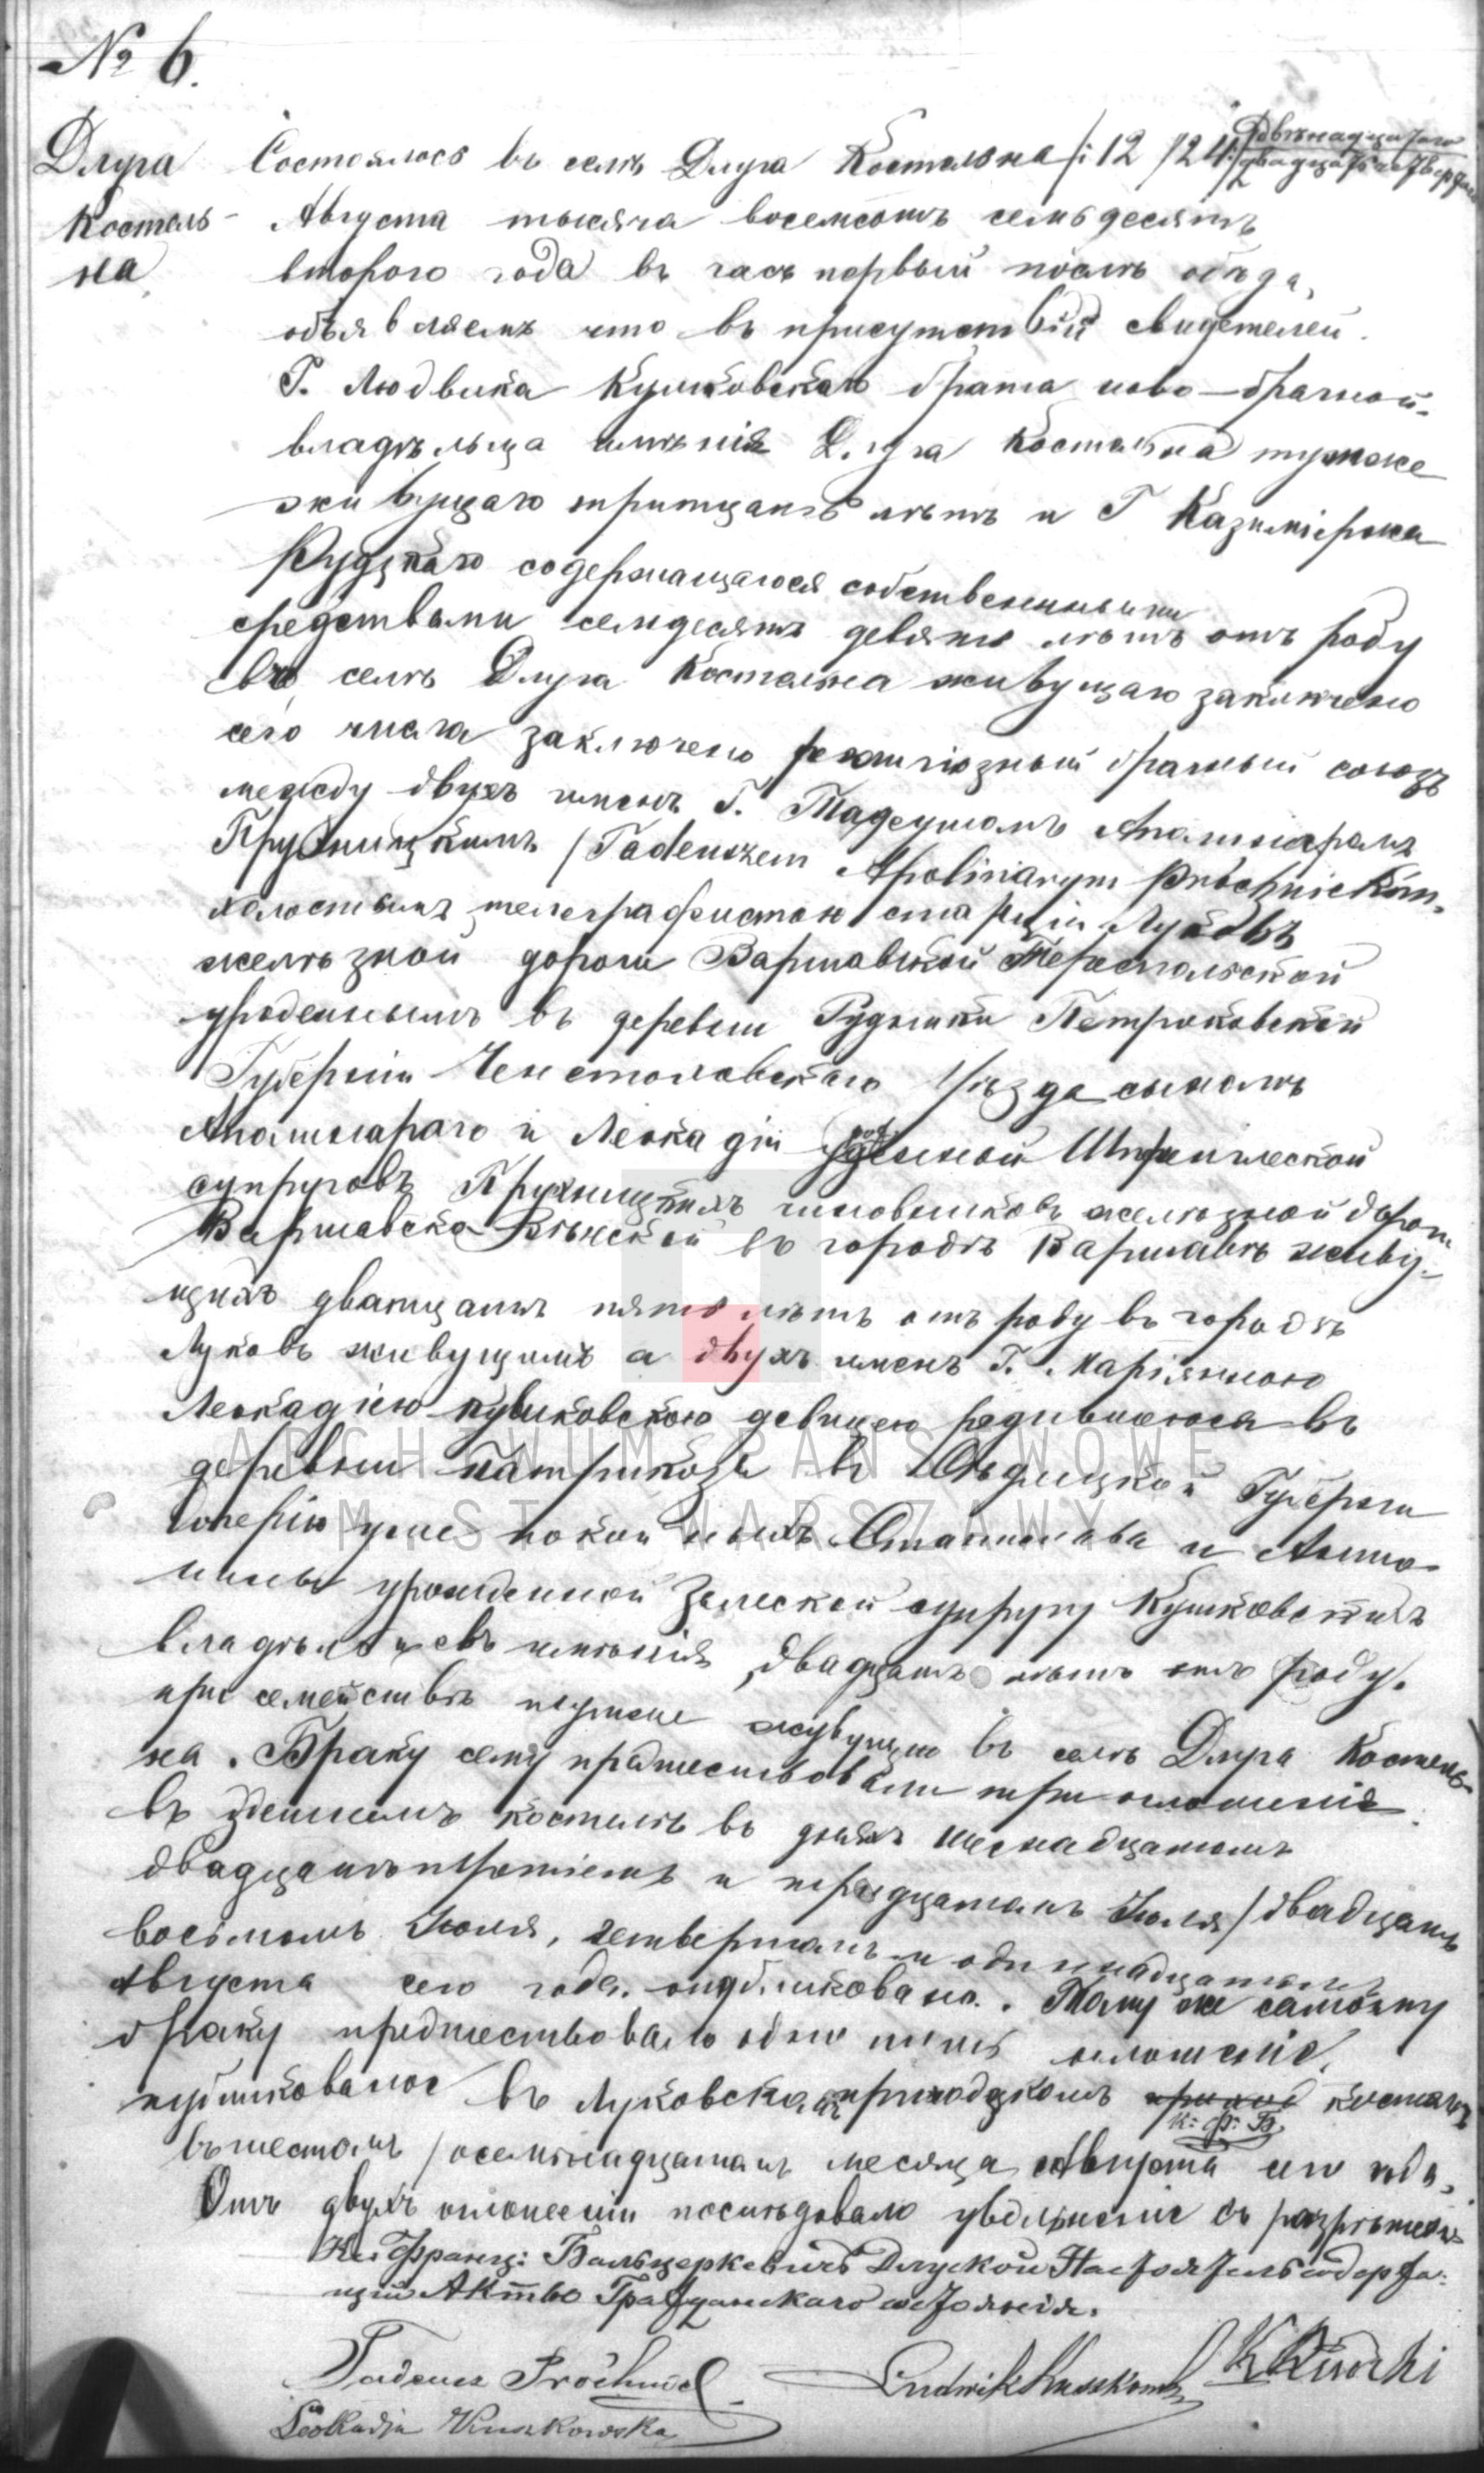 № 6.
Длуга
Костель-
на
Состоялось въ селѣ Длуга Костельна /: 12 /24:/ двѣнадцатаго
двадцать четвертаго
Августа тысяча восемсотъ семьдесятъ
второго года въ часъ первый послѣ обѣда,
объявляемъ что въ присутствіи свидетелей
Г. Людвика Кушковскаго брата ново-брачной
владѣльца имѣнія Длуга Костельна тутже
живущаго тритцать лѣтъ и Г Казиміржа
Рудзкаго содержащагося собственными
средствами семдесятъ девять лѣтъ отъ роду
въ селѣ Длуга Костельна живущаго заключено
сего числа заключено религіозный брачный союзъ
между двухъ именъ Г. Тадеушомъ Аполинарымъ
Прухницкимъ /Tadeuszem Apolinarym Próchnickim
холостымъ телеграфистою стаціи Луковъ
желѣзной дороги Варшавской Тереспольской
уроденнымъ въ деревни Рудники Петроковской
Губерніи Ченстоховскаго Уѣзда сыномъ
Аполинараго и Леокадіи уроденной
супруговъ Прухницкихъ чиновниковъ желѣзной дороги
Варшавско Вѣнской въ городѣ Варшавѣ живу-
щихъ дватцать пять лѣтъ отъ роду въ городѣ
Луковъ живущимъ а двухъ именъ Г. Маріянною
Леокадіею Кушковскою девицею родившеюся въ
деревни Патрикозы въ Сѣдлецкой Губерніи
дочерію уже покойныхъ Станислава и Анто-
нины урожденной Залеской супругу Кушковскихъ
владѣльцевъ имѣнія, двадцать лѣтъ отъ роду.
при семействѣ тутже живущею въ селѣ Длуга Костель-
на. Браку сему предшествовали три оглашенія
въ здешнемъ костелѣ въ дняхъ шеснадцатомъ
двадцать третіемъ и тридцатомъ Іюля /двадцать
восьмомъ Іюля, четвертомъ и одиннадцатомъ
Августа сего года. опубликовано. Тому же самому
браку предшествовало одно лишъ оглашеніе,
публикованое въ Луковскомъ приходскомъ костелѣ
к: Ф: Б.
въ шестомъ /осемьнадцатомъ месяца Августа сего года.
Отъ двухъ оглошеніи последовало уволненіе съ
Кс: Франц: Бальцеркевичъ Длускои Настоятель содержа-
щій Актъ Гражданскаго состоянія.
Tadeusz Próchnicki
Ludwik Kuszkowski
K Rudzki
Leokadja Kuszkowska
ARCHIWUM PAŃSTWOWE
M. ST. WARSZAWY